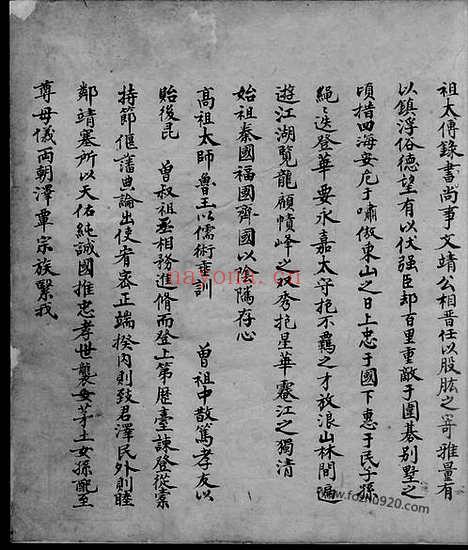 祖太傅錄書尚事文靖公相晉任以股肱之寄雅量有
以鎮浮俗德望有以伏强臣却百里重敵于圍碁别墅之
頃措四海安危于嘯傲東山之日上忠于國下惠于民子孫
繩之迭登華要永嘉太守抱不羈之才放浪山林間遍
遊江湖覽龍顧幘峰之以秀挹星華蹇江之獨清
始祖秦國福國齊國以陰隲存心
高祖太師魯王以儒術垂訓 曾祖中散篤孝友以
貽後昆 曾叔祖丞相務進脩而登上第歷臺諫登從橐
持節僊藩典論出使者審正端揆内則致君澤民外則睦
鄰靖塞所以天佑純誠國推忠孝世襲安茅土女孫配至
尊母儀兩朝澤覃宗族繄我
nayona.cn
www.fozhu920.com